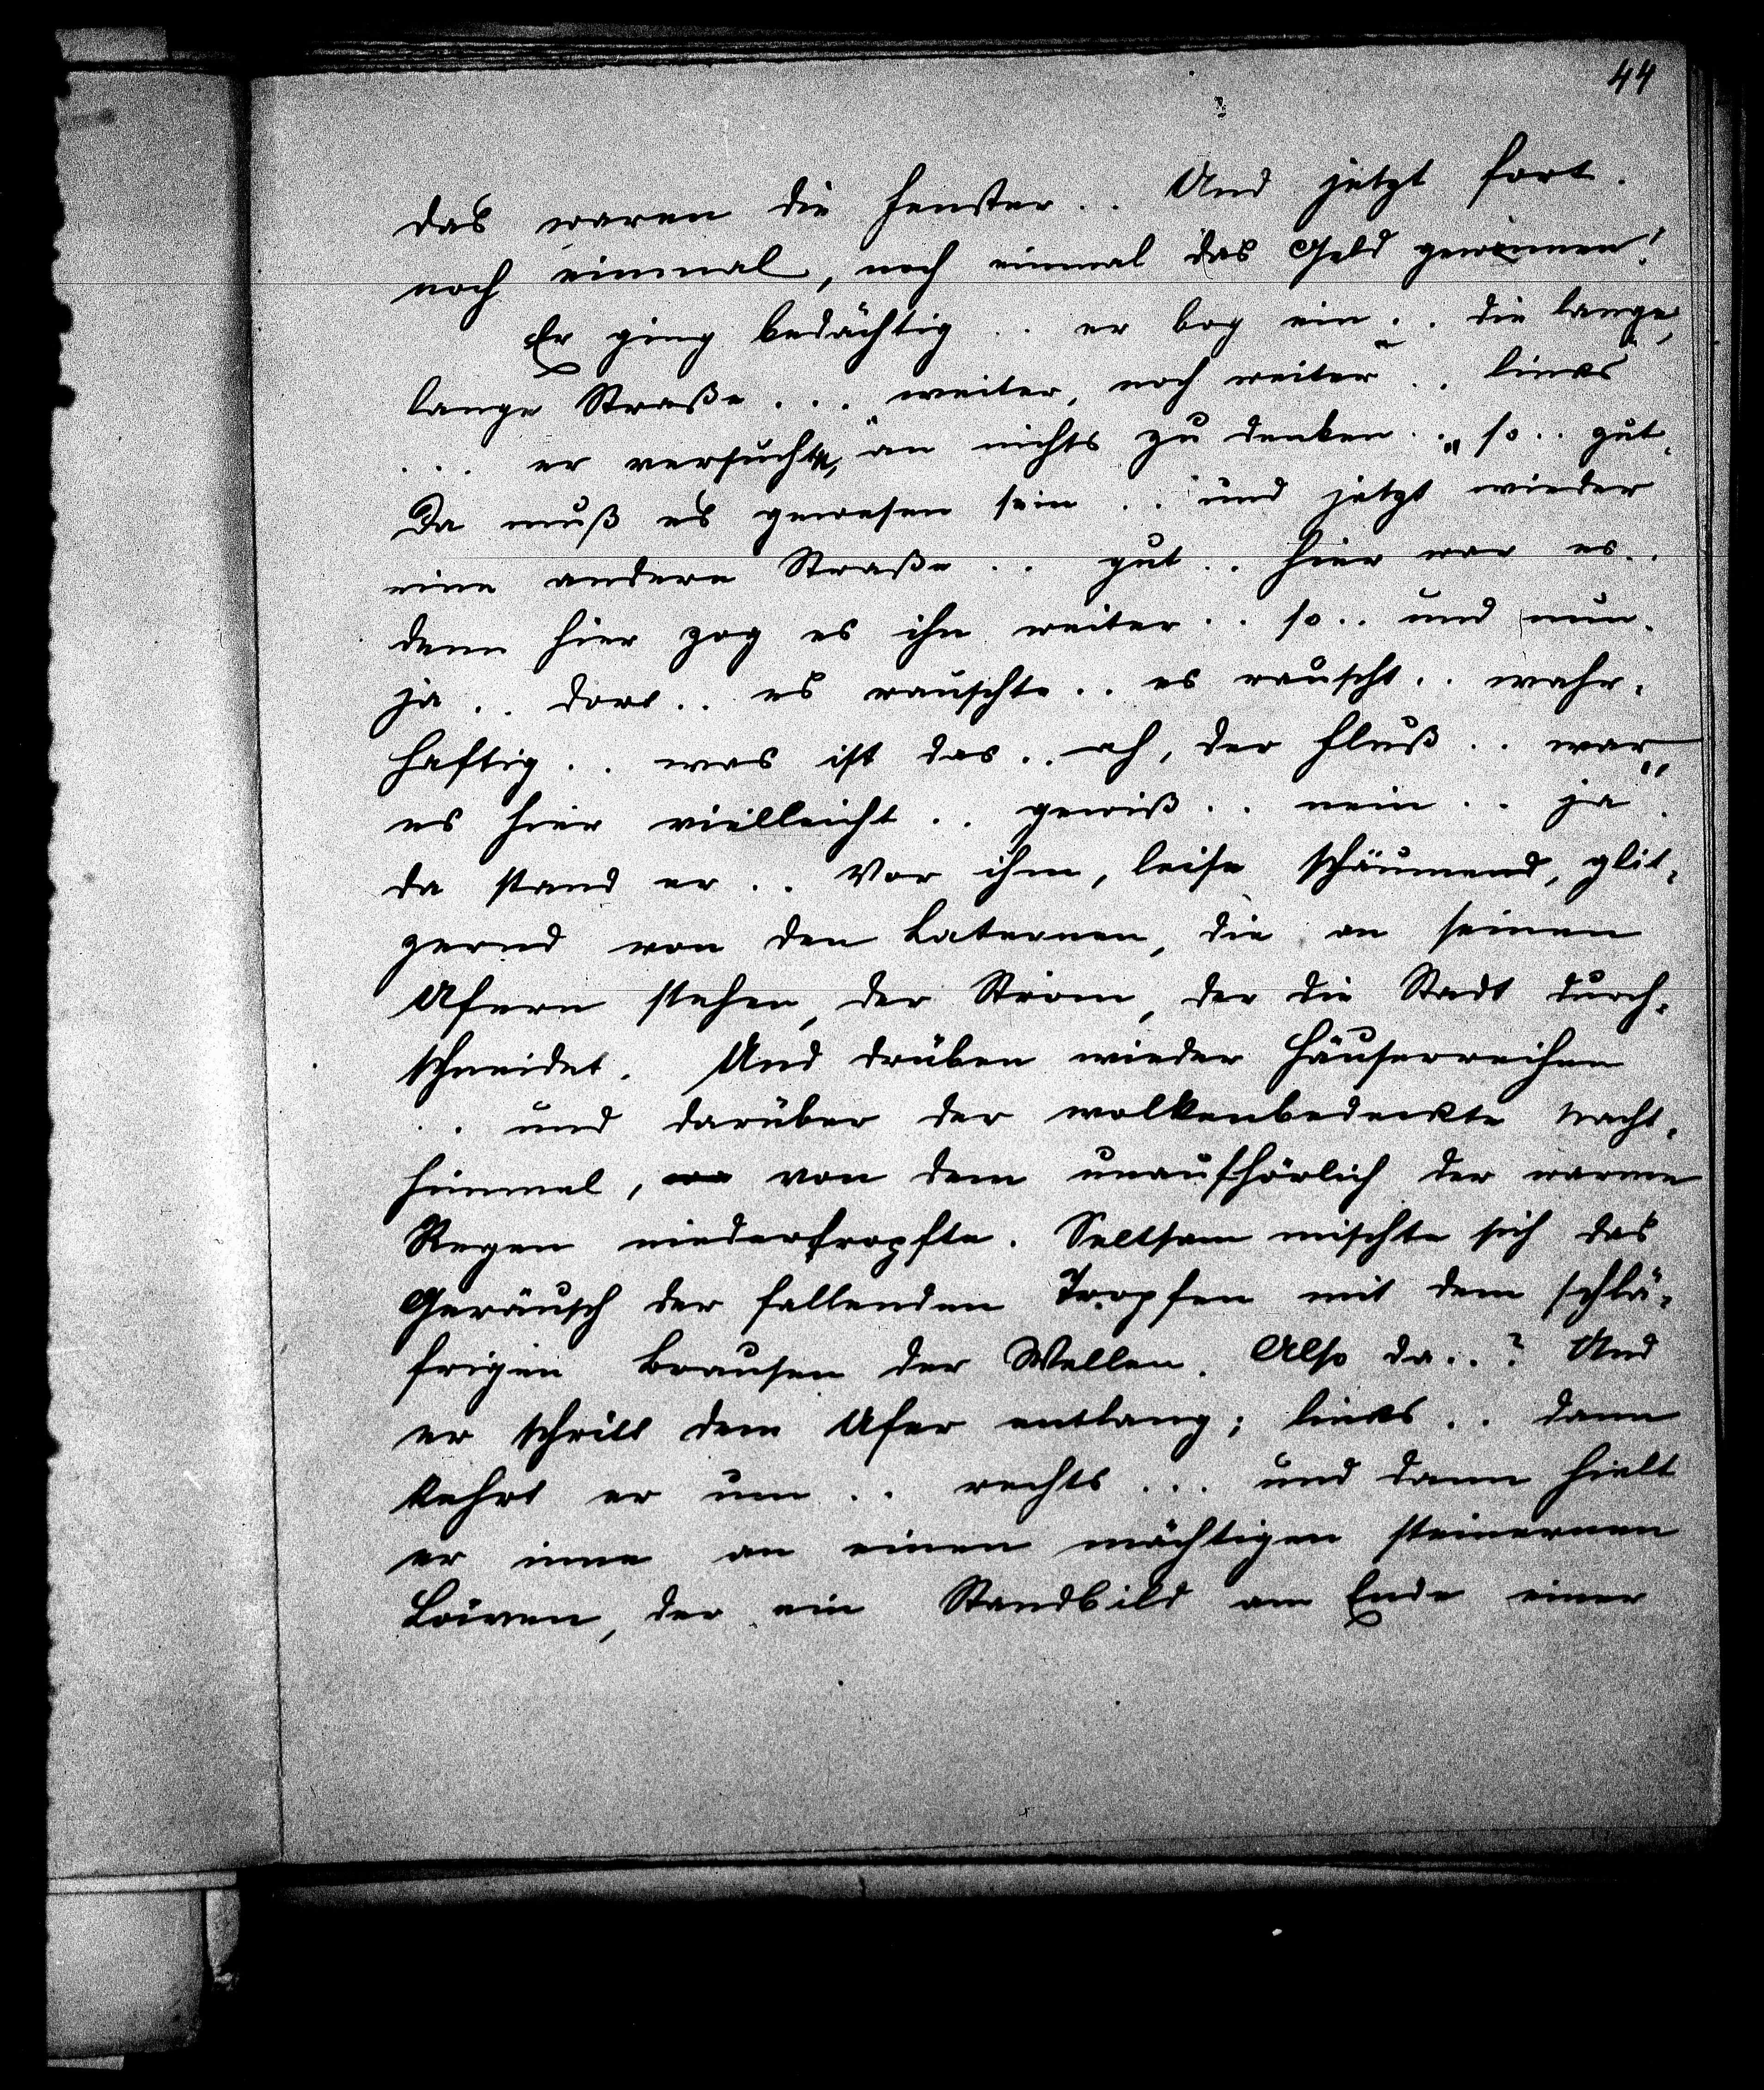 44
das waren die Fenster.. Und jetzt fort.
noch einmal, noch einmal das Geld gewinnen!
Er ging bedächtig.. er bog ein.. die lange,
lange Straße... „weiter, noch weiter“.. links
... er versuchte, an nichts zu denken.. „so.. gut.
Da muß es gewesen sein.. und jetzt wieder
eine andere Straße.. gut.. hier war es..
denn hier zog es ihn weiter.. so.. und nun.
ja.. dort.. es rauschte.. es rauscht.. wahr-
haftig.. was ist das.. ah, der Fluß.. war
es hier vielleicht.. gewiß.. nein.. ja“.
da stand er.. Vor ihm, leise schäumend, glit-
zernd von den Laternen, die an seinen
Ufern stehen, der Strom, der die Stadt durch-
schneidet. Und drüben wieder Häuserreihen
.. und darüber der wolkenbedeckte Nacht-
himmel, von dem unaufhörlich der warme
Regen niedertropfte. Seltsam mischte sich das
Geräusch der fallenden Tropfen mit dem schlä-
frigen Brausen der Wellen. Also da..? Und
er schritt dem Ufer entlang; links.. dann
kehrt er um.. rechts... und dann hielt
er inne an einen mächtigen steinernen
Löwen, der ein Standbild am Ende einer